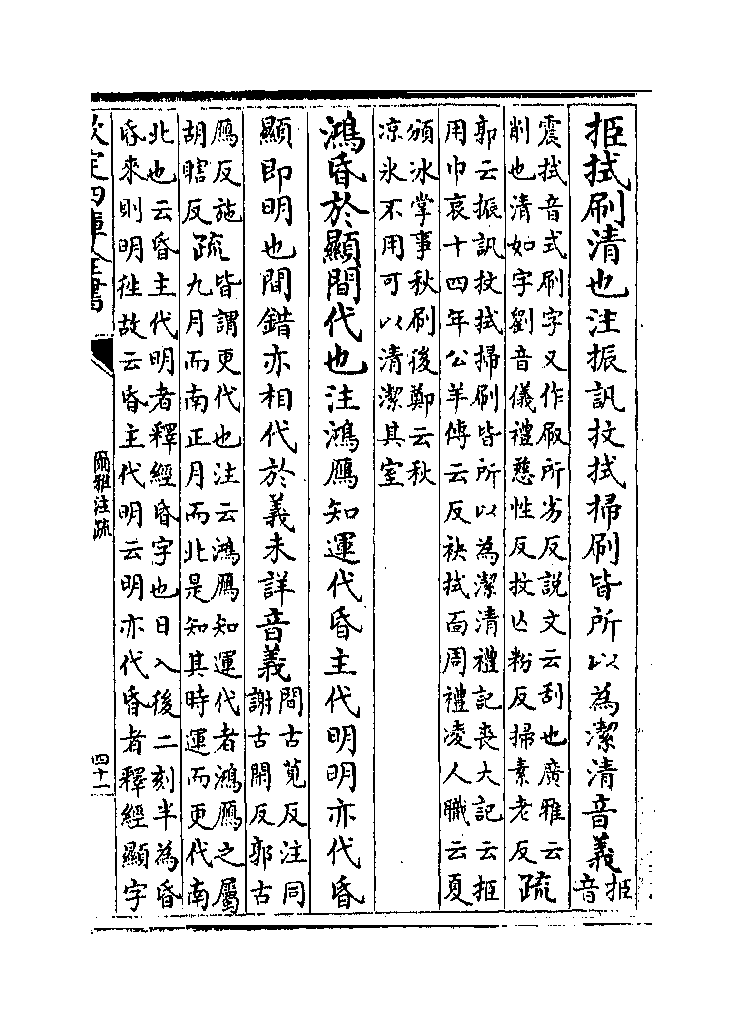 挋拭刷清也注振訊抆拭掃刷皆所以為潔清音義挋音
震拭音式刷字又作㕞所劣反說文云刮也廣雅云
削也清如字劉音儀禮慈性反抆亡粉反掃素老反疏
郭云振訊抆拭掃刷皆所以為潔清禮記喪大記云挋
用巾哀十四年公羊傳云反袂拭面周禮凌人職云夏
頒冰掌事秋刷後鄭云秋
凉氷不用可以清潔其室
鴻昏於顯間代也注鴻鴈知運代昏主代明明亦代昏
顯即明也間錯亦相代於義未詳音義間古莧反注同謝古閑反郭古
鴈反施胡瞎反疏皆謂更代也注云鴻鴈知運代者鴻鴈之屬九月而南正月而北是知其時運而更代南
北也云昏主代明者釋經昏字也日入後二刻半為昏
昏來則明往故云昏主代明云明亦代昏者釋經顯字
欽定四庫全書
爾雅注疏